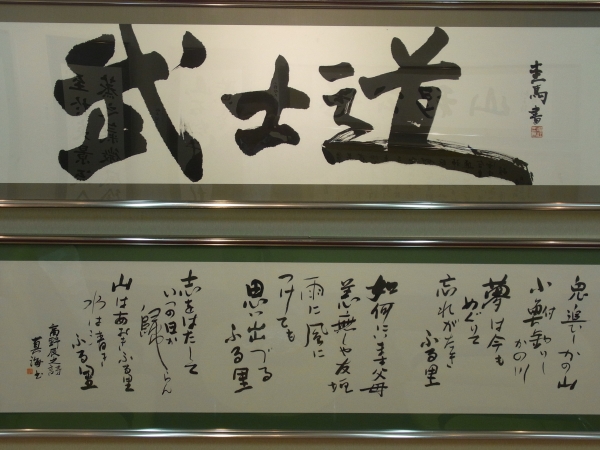 武士道
圭馬書
兎追ひしかの山
小鮒釣りし
かの川
夢は今も
めぐりて
忘れがたき
ふる里
如何にいます父母
恙無しや友垣
雨に風に
つけても
思い出づる
ふる里
志をはたして
いつの日か
歸らん
山はあをきふる里
水は清き
ふる里
高野辰之詩